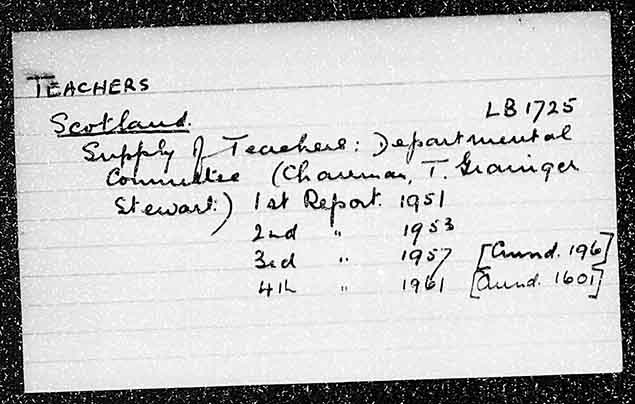 TEACHERS
Scotland. LB1725
Supply of Teachers: Departmental
Committee (Chairman, T. Grainger
Stewart.) 1st Report. 1951
2nd " 1953
3rd " 1957 [Cmnd. 196]
4th " 1961 [Cmnd. 1601]